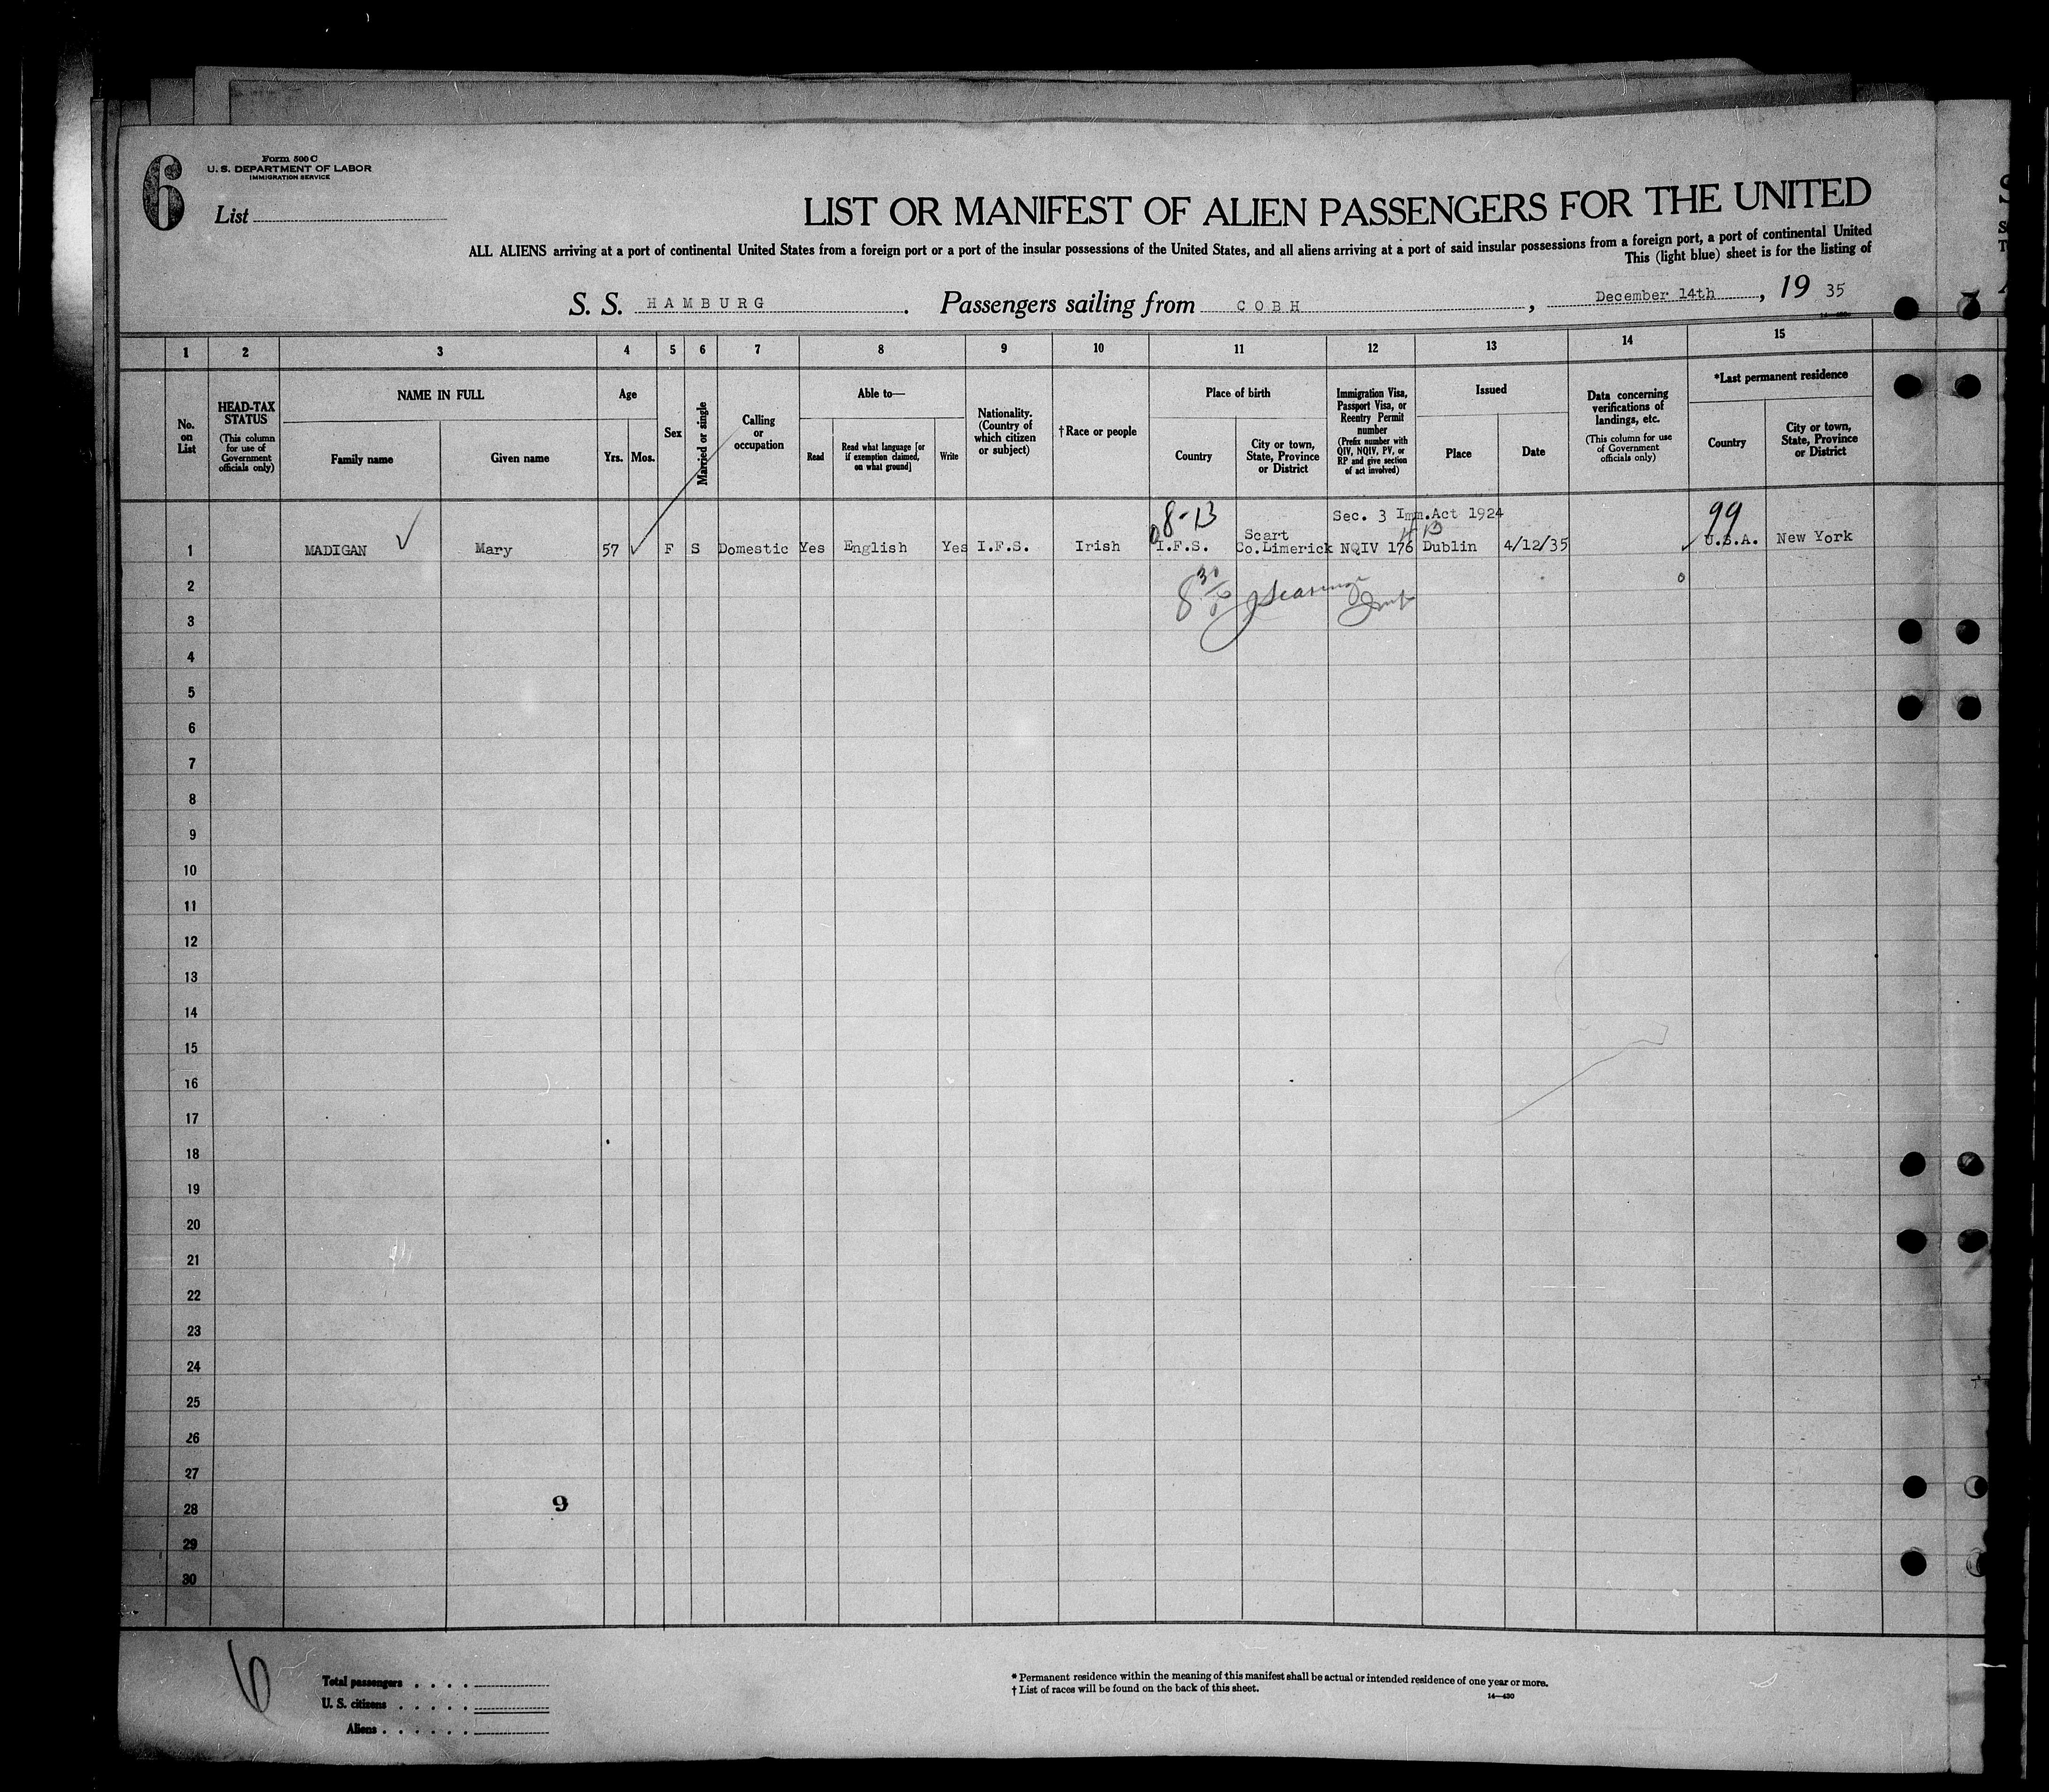 6
Form 500 C
U. S. DEPARTMENT OF LABOR
IMMIGRATION SERVICE
List
LIST OR MANIFEST OF ALIEN PASSENGERS FOR THE UNITED
ALL ALIENS arriving at a port of continental United States from a foreign port or a port of the insular possessions of the United States, and all aliens arriving at a port of said insular possessions from a foreign port, a port of continental United
This (light blue) sheet is for the listing of
S. S. HAMBURG. Passengers sailing from COBH, December 14th, 19 35
1 2 3 4 5 6 7 8 9 10 11 12 13 14 15
No. on List
HEAD-TAX STATUS
(This column for use of Government officials only)
NAME IN FULL
Family name
Given name
Age
Yrs. Mos.
Sex
Married or single
Calling or occupation
Able to—
Read
Read what language [or if exemption claimed, on what ground]
Write
Nationality. (Country of which citizen or subject)
†Race or people
Place of birth
Country
City or town, State, Province or District
Immigration Visa, Passport Visa, or Reentry Permit number
(Prefix number with QIV, NQIV, PV, or RP and give section of act involved)
Issued
Place
Date
Data concerning verifications of landings, etc.
(This column for use of Government officials only)
*Last permanent residence
Country
City or town, State, Province or District
8-13
Sec. 3 Imm.Act 1924
99
Scart
1 MADIGAN Mary 57 F S Domestic Yes English Yes I.F.S. Irish I.F.S. Co.Limerick NQIV 176 Dublin 4/12/35 U.S.A. New York
2
3
4
5
6
7
8
9
10
11
12
13
14
15
16
17
18
19
20
21
22
23
24
25
26
27
28 9
29
30
6
Total passengers
U. S. citizens
Aliens
* Permanent residence within the meaning of this manifest shall be actual or intended residence of one year or more.
† List of races will be found on the back of this sheet.
14—430